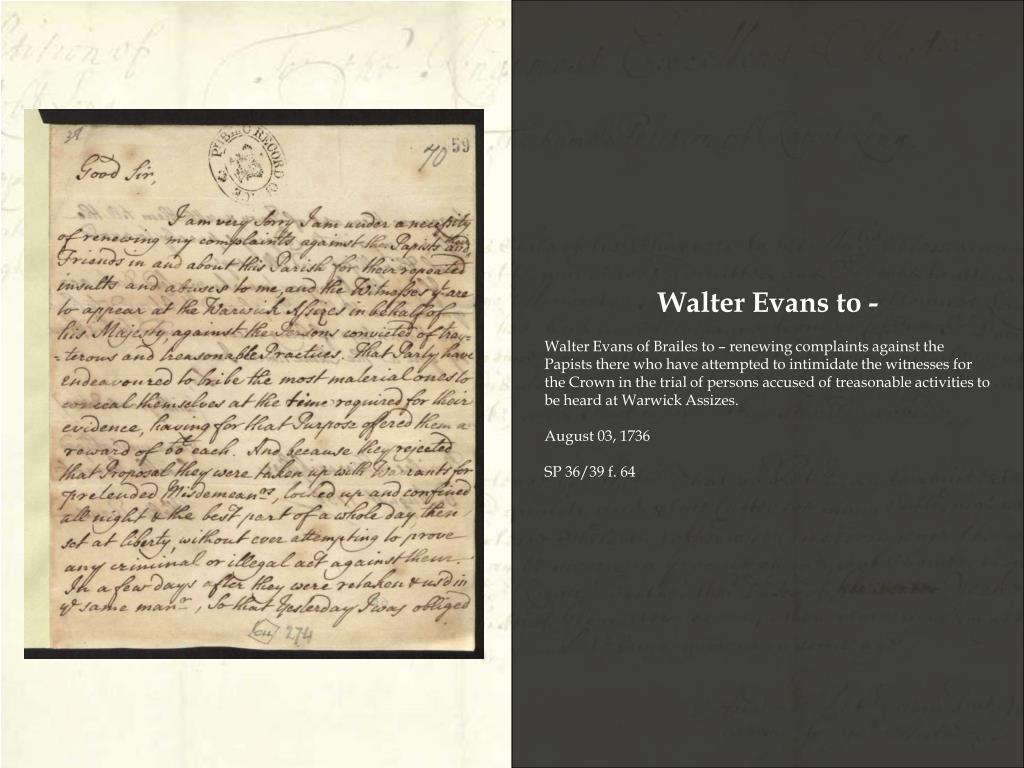 39
PUBLIC RECORD OFFICE
70
59
Good Sir,
I am very sorry I am under a necessity
of renewing my complaints against the Papists and
Friends in and about this Parish for their repeated
insults and abuses to me, and the Witnesses yt are
to appear at the Warwick Assizes in behalf of
his Majesty, against the Persons convicted of tray-
-terous and treasonable Practices. That Party have
endeavoured to bribe the most material ones to
conceal themselves at the time required for their
evidence, having for that Purpose offered them a
reward of each. And because they rejected
that Proposal they were taken up with Warrants for
pretended Misdemeanrs, locked up and confined
all night & the best part of a whole day, then
set at liberty, without ever attempting to prove
any criminal or illegal act against them.
In a few days after they were retaken & us'd in
ye same manr, So that Yesterday I was obliged
274
Walter Evans to -
Walter Evans of Brailes to – renewing complaints against the
Papists there who have attempted to intimidate the witnesses for
the Crown in the trial of persons accused of treasonable activities to
be heard at Warwick Assizes.
August 03, 1736
SP 36/39 f. 64